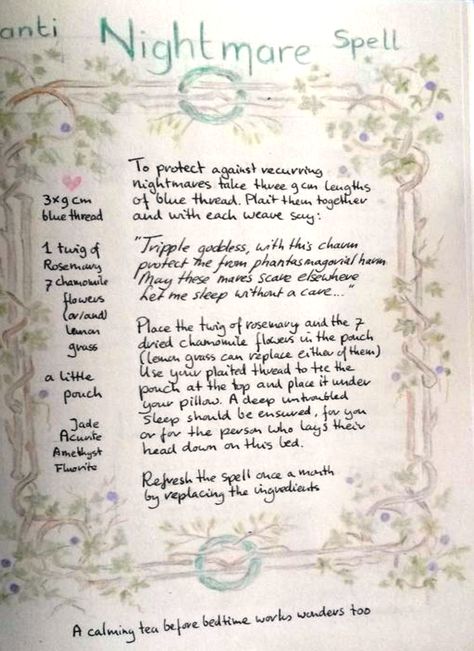 anti Nightmare Spell
3x9cm
blue thread
1 twig of
Rosemary
7 chamomile
flowers
(or/and)
lemon
grass
a little
pouch
Jade
Acurite
Amethyst
Fluorite
To protect against recurring
nightmares take three 9cm lengths
of blue thread. Plait them together
and with each weave say:
"Tripple goddess, with this charm
protect me from phantasmagorial harm
May these mares scare elsewhere
Let me sleep without a care..."
Place the twig of rosemary and the 7
dried chamomile flowers in the pouch
(lemon grass can replace either of them)
Use your plaited thread to tie the
pouch at the top and place it under
your pillow. A deep untroubled
sleep should be ensured, for you
or for the person who lays their
head down on this bed.
Refresh the spell once a month
by replacing the ingredients
A calming tea before bedtime works wonders too